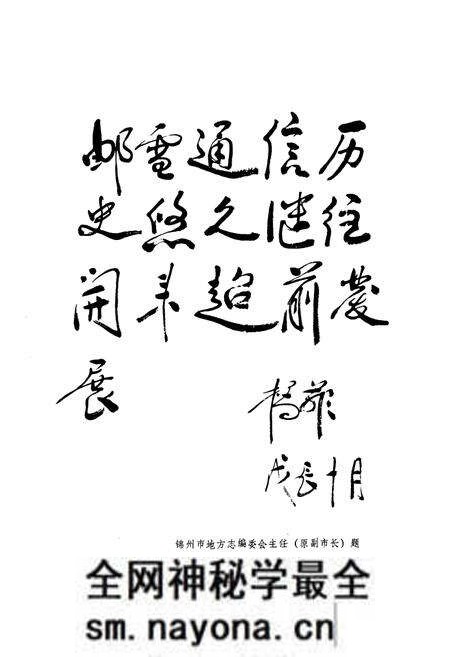 邮电通信历
史悠久继往
开来超前发
展
戊辰十月
锦州市地方志编委会主任（原副市长）题
全网神秘学最全
sm.nayona.cn